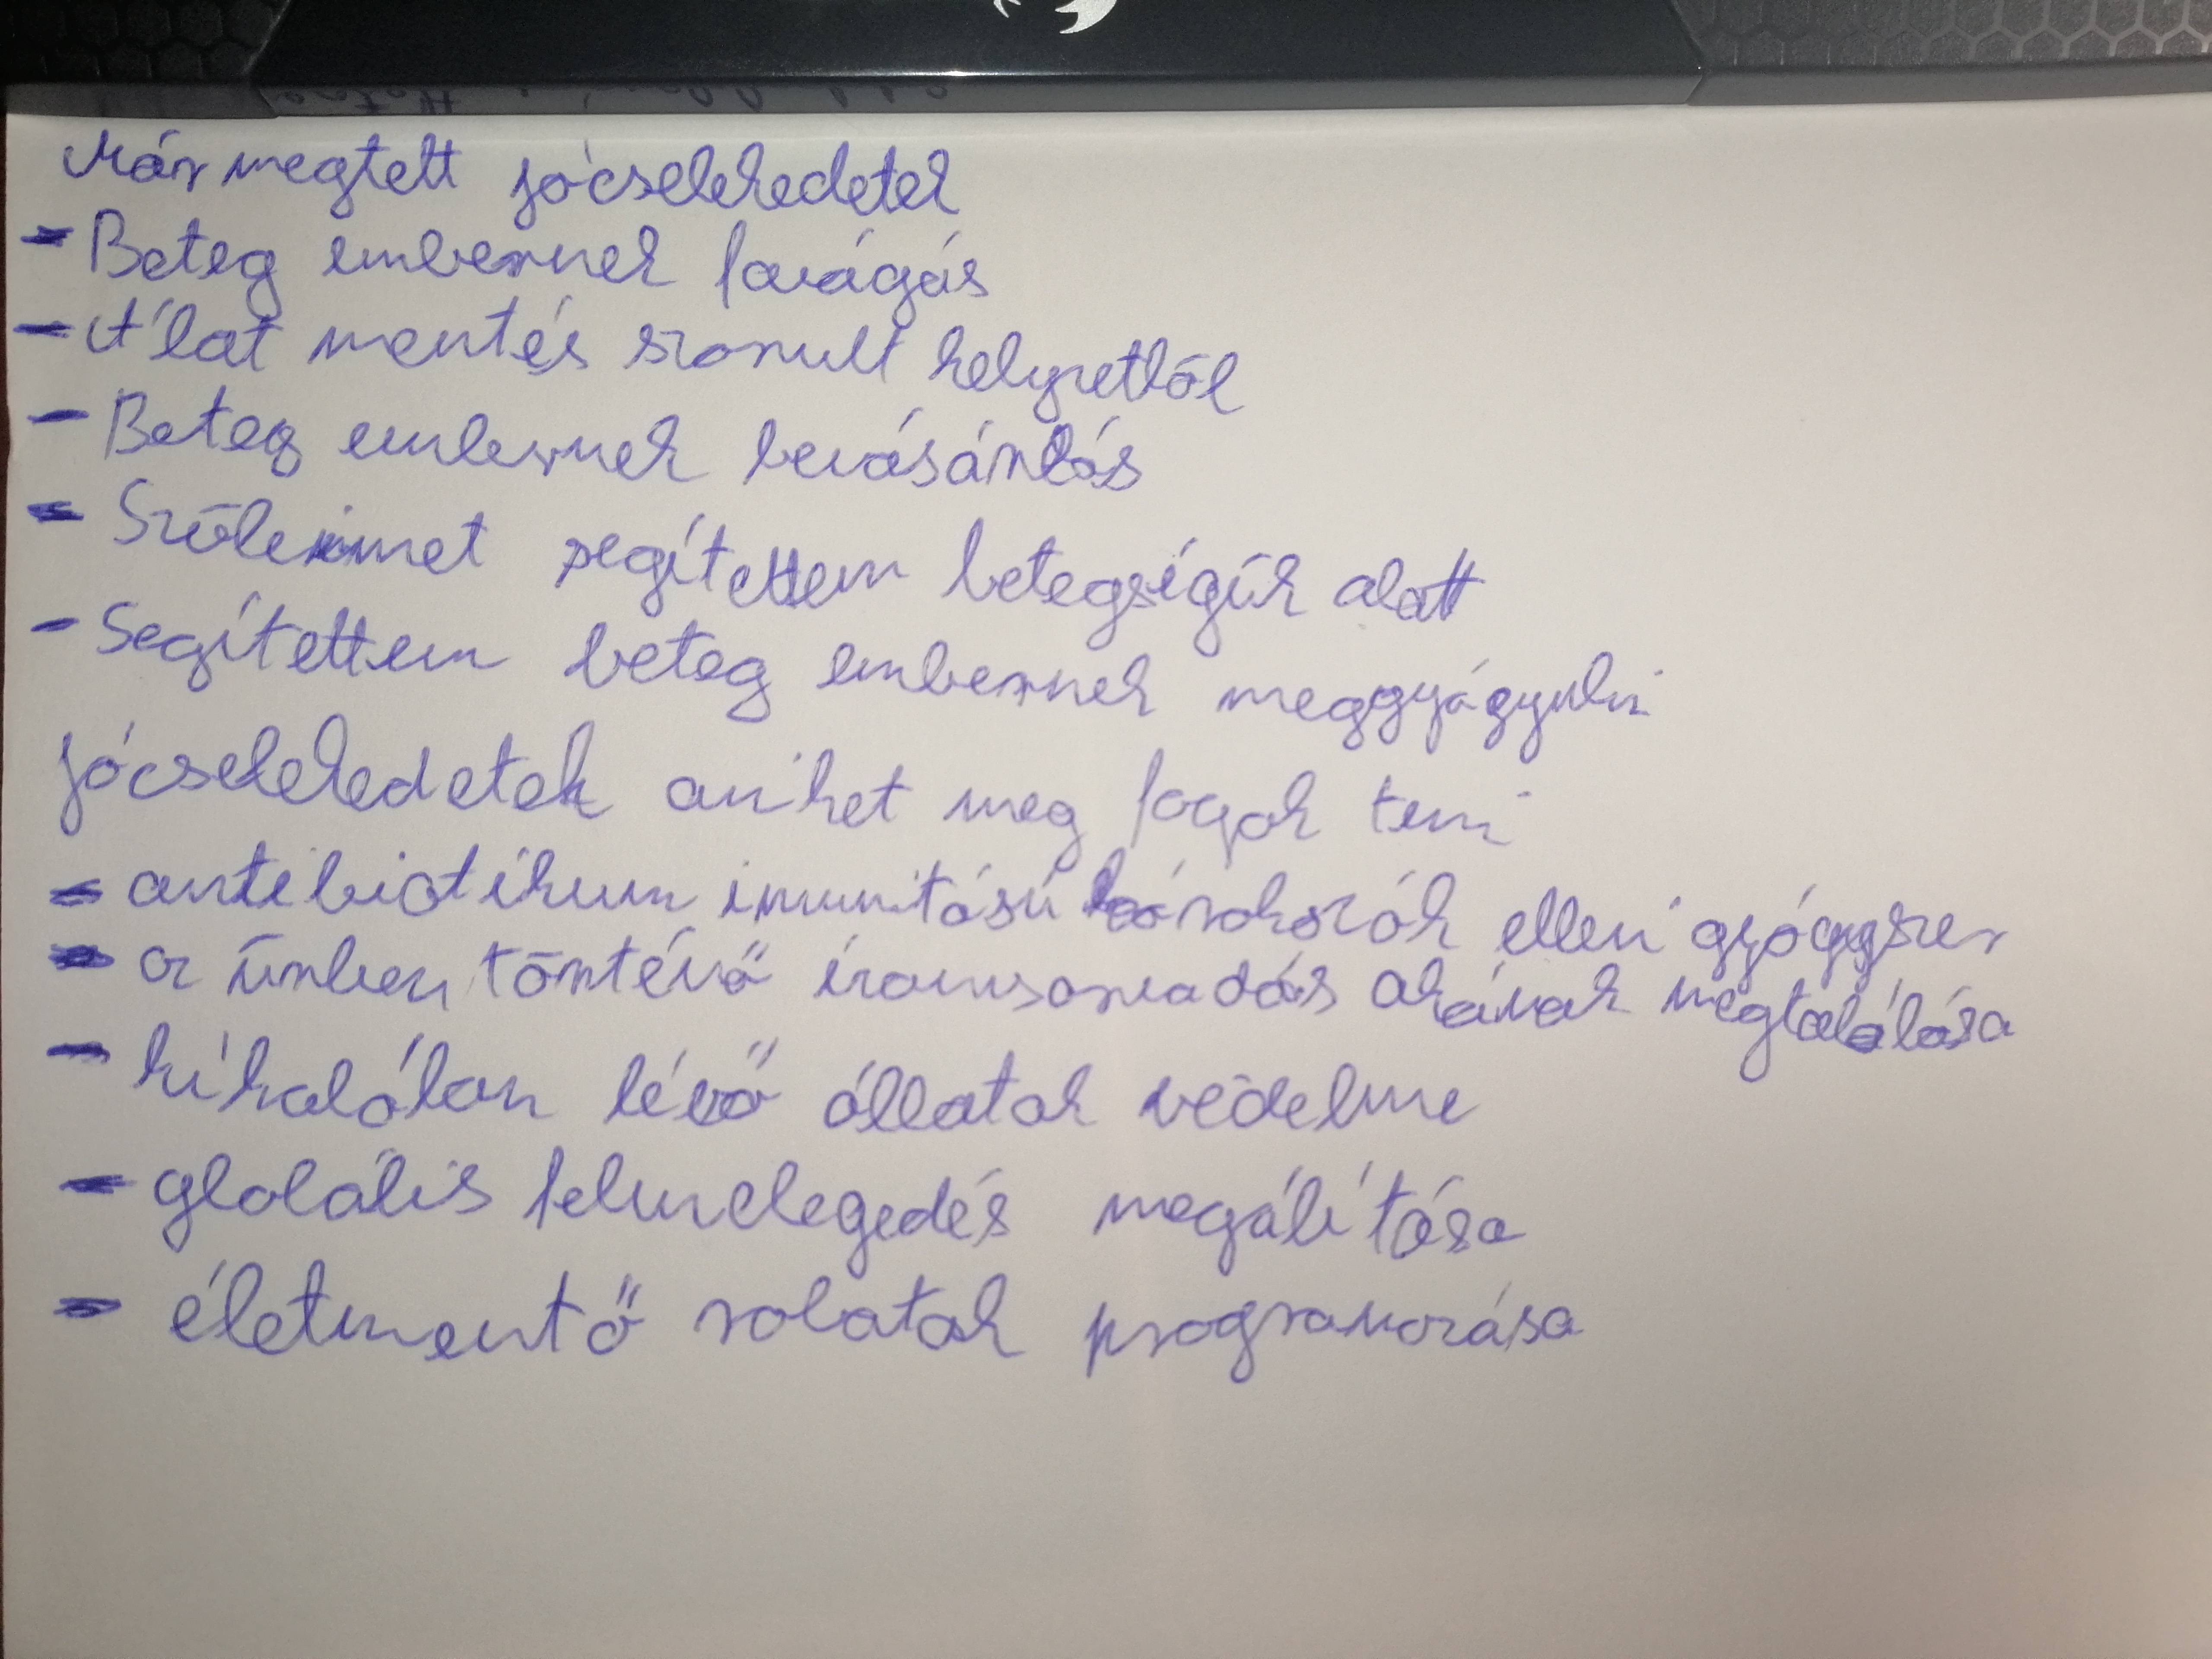 Már megtett jócselekedetek
- Beteg embernek favágás
- Álat mentés szorult helyzetből
- Beteg embernek bevásárlás
- Szőleimet segítettem betegségük alatt
- Segítettem beteg embernek meggyágyulni
jócselekedetek amiket meg fogok teni
- antibiotikum imunitású kórokozók elleni gyógyszer
- az űrben történő áramsorvadás okának megtalálása
- kihalóban lévő állatok védelme
- globális felmelegedés megálítása
- életmentő robotok programozása